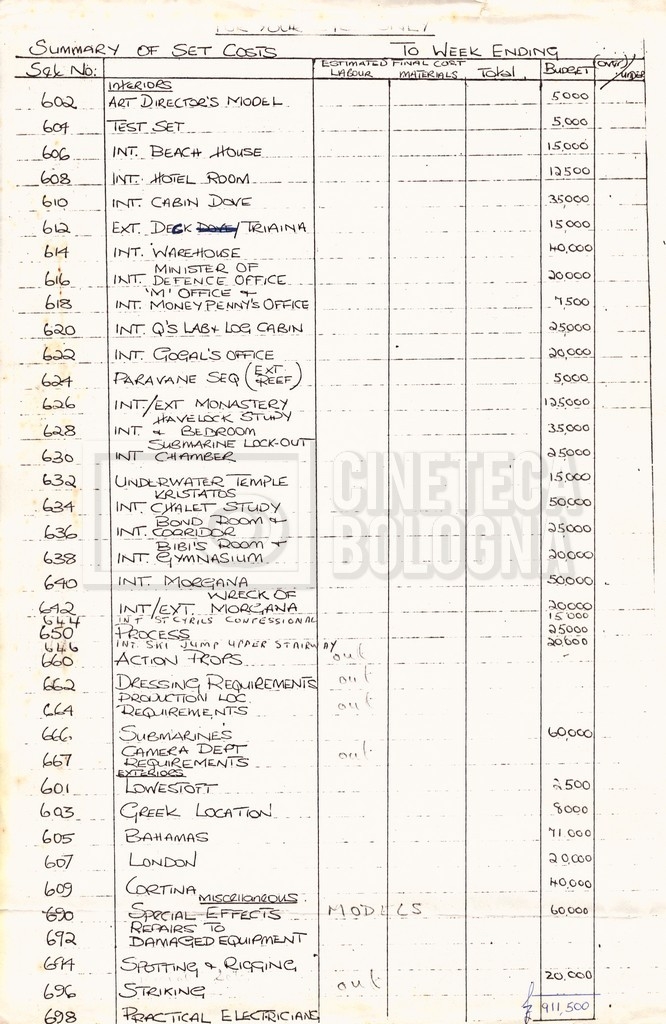 SUMMARY OF SET COSTS TO WEEK ENDING
Set No: ESTIMATED FINAL COST LABOUR MATERIALS Total BUDGET (OVER)/UNDER
INTERIORS
602 ART DIRECTOR'S MODEL 5000
604 TEST SET 5,000
606 INT. BEACH HOUSE 15,000
608 INT. HOTEL ROOM 12500
610 INT. CABIN DOVE 35,000
612 EXT. DECK DOVE/TRIAINA 15000
614 INT. WAREHOUSE 40,000
616 INT. MINISTER OF DEFENCE OFFICE 20000
618 INT. 'M' OFFICE + MONEYPENNY'S OFFICE 7500
620 INT. Q'S LAB + LOG CABIN 25,000
622 INT. GOGAL'S OFFICE 20,000
624 PARAVANE SEQ (EXT REEF) 5,000
626 INT/EXT MONASTERY 125,000
628 INT. HAVELOCK STUDY & BEDROOM 35000
630 INT SUBMARINE LOCK-OUT CHAMBER 25000
632 UNDERWATER TEMPLE 15,000
634 INT. KRISTATOS CHALET STUDY 50,000
636 INT. BOND ROOM + CORRIDOR 25000
638 INT. BIBI'S ROOM + GYMNASIUM 20000
640 INT. MORGANA 50000
642 INT/EXT. WRECK OF MORGANA 20000
644 INT ST CYRILS CONFESSIONAL 15000
650 PROCESS 25000
646 INT. SKI JUMP UPPER STAIRWAY 20,000
660 ACTION PROPS out
662 DRESSING REQUIREMENTS out
664 PRODUCTION LOC. REQUIREMENTS out
666 SUBMARINES 60,000
667 CAMERA DEPT REQUIREMENTS out
EXTERIORS
601 LOWESTOFT 2500
603 GREEK LOCATION 8000
605 BAHAMAS 71,000
607 LONDON 20,000
609 CORTINA 40,000
MISCELLANEOUS
690 SPECIAL EFFECTS MODELS 60,000
692 REPAIRS TO DAMAGED EQUIPMENT
694 SPOTTING & RIGGING 20,000
696 STRIKING out
698 PRACTICAL ELECTRICIANS £ 911,500
CINETECA
BOLOGNA